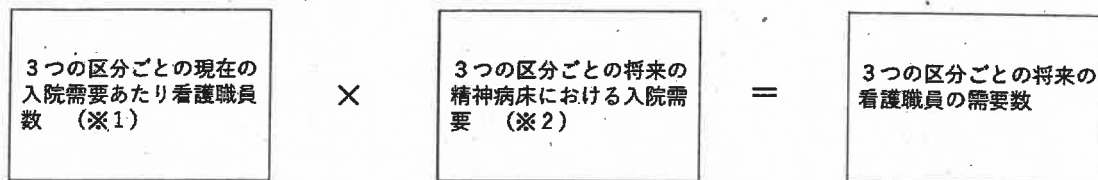 3つの区分ごとの現在の
入院需要あたり看護職員
数 (※1)
×
3つの区分ごとの将来の
精神病床における入院需
要 (※2)
=
3つの区分ごとの将来の
看護職員の需要数